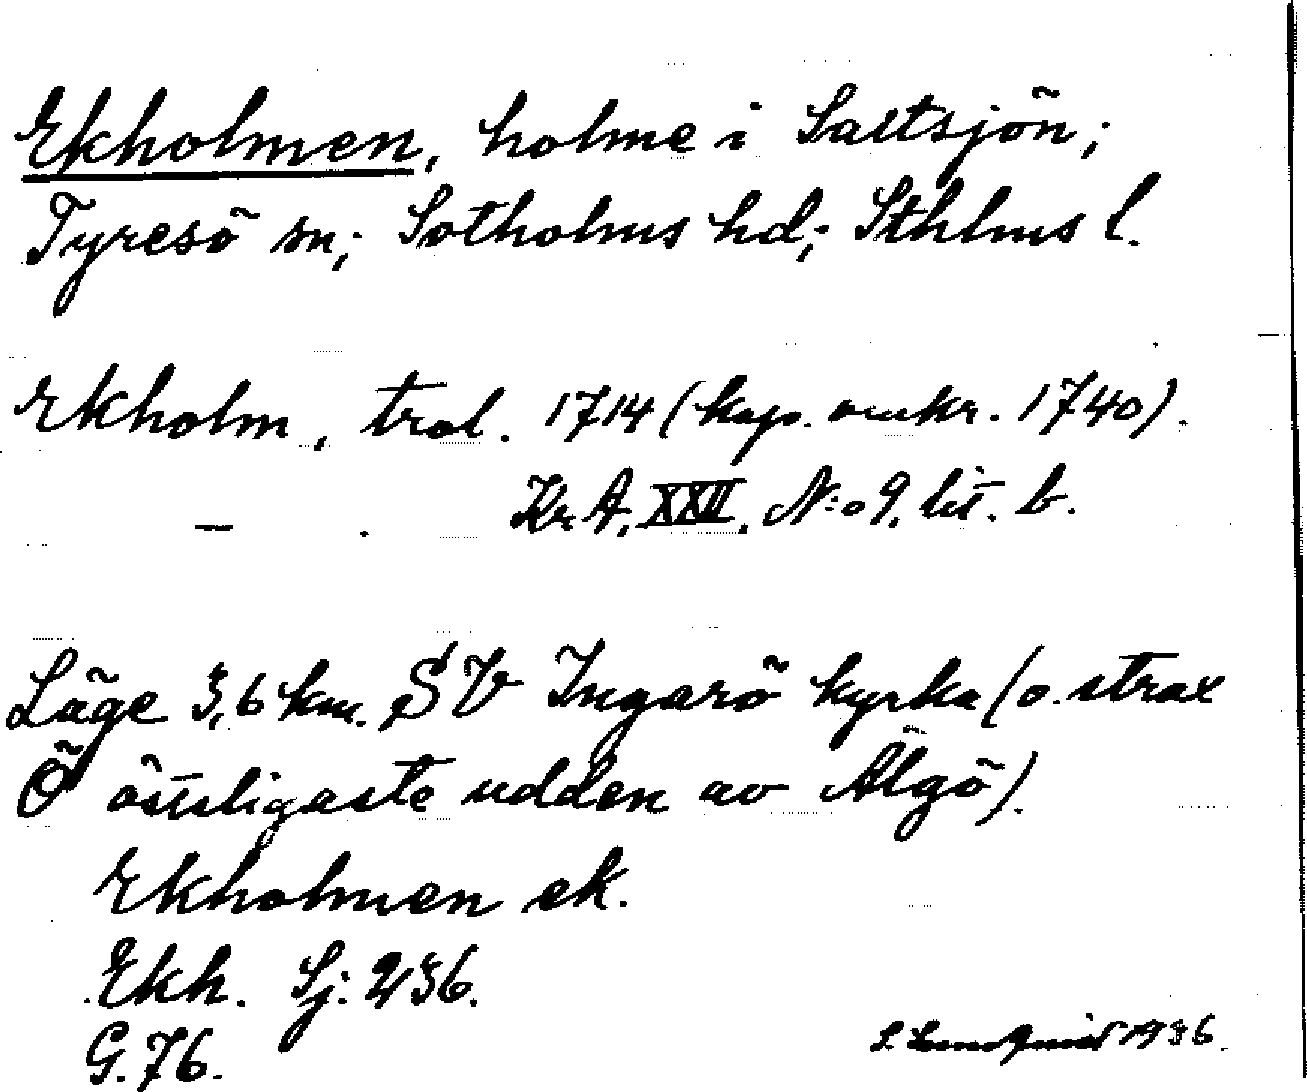 Ekholmen, holme i Saltsjön;
Tyresö sn; Sotholms hd; Sthlms l.
Ekholm, trol. 1714 (kop. omkr. 1740).
— . Kr A, XXII, N:o 9, lit. b.
Läge 3,6 km. SV Ingarö kyrka (o. strax
Ö östligaste udden av Älgö).
Ekholmen ek.
Ekh. Sj: 236.
G. 76.
S. Lundqvist 1936.